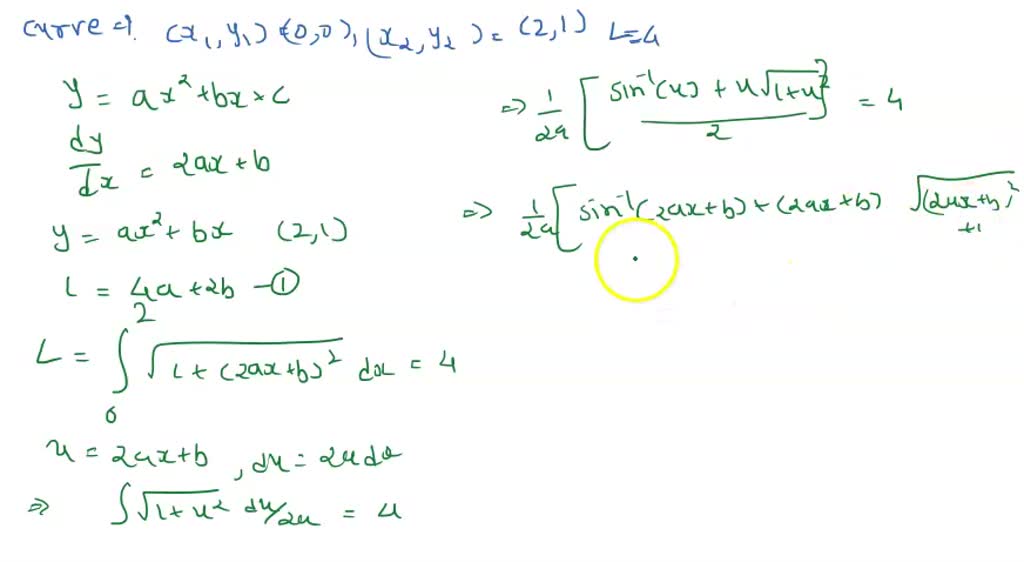 curve =1. (x₁, y₁) = (0,0), (x₂, y₂) = (2,1) L=4
y = ax² + bx + c
dy/dx = 2ax + b
y = ax² + bx (2,1)
1 = 4a + 2b -①
L = ∫₀² √(1 + (2ax+b)²) dx = 4
u = 2ax+b , du = 2a dx
⇒ ∫ √(1+u²) du/2a = 4
⇒ 1/2a [ (sin⁻¹(u) + u√(1+u²)) / 2 ] = 4
⇒ 1/2a [ sin⁻¹(2ax+b) + (2ax+b) √((2ax+b)² +1)